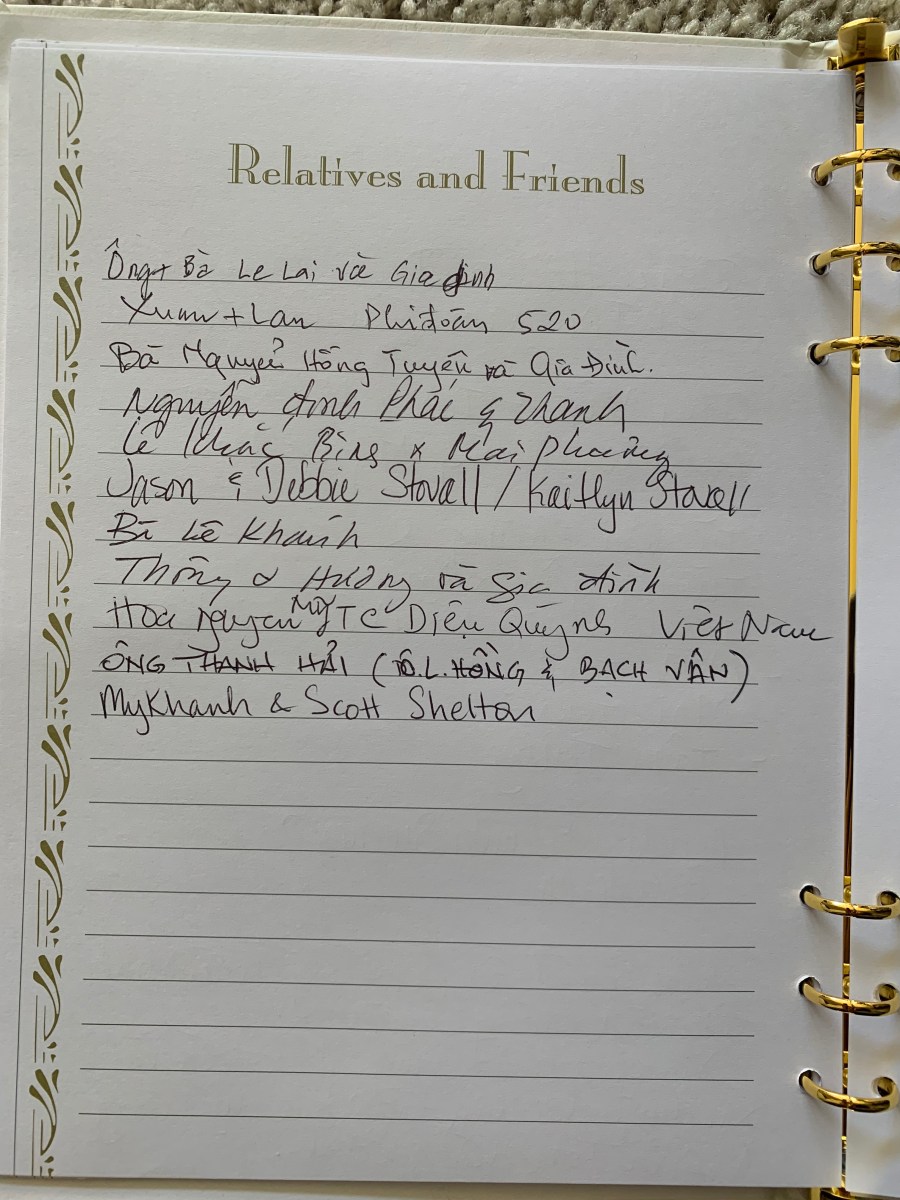 Relatives and Friends
Ông + Bà Le Lai và Gia đình
Xuân + Lan Phi đoàn 520
Bà Nguyễn Hồng Tuyến và Gia Đình.
Nguyễn đình Phác & Thanh
Lê Khắc Bìng x Mai Phương
Jason & Debbie Stovall / Kaitlyn Stovall
Bì Lê Khánh
Thông & Hương và gia đình
Hoa Nguyen Mỹ TC Diệu Quỳnh Việt Nam
ÔNG THANH HẢI (Ô.L.HỒNG & BẠCH VÂN)
MyKhanh & Scott Shelton